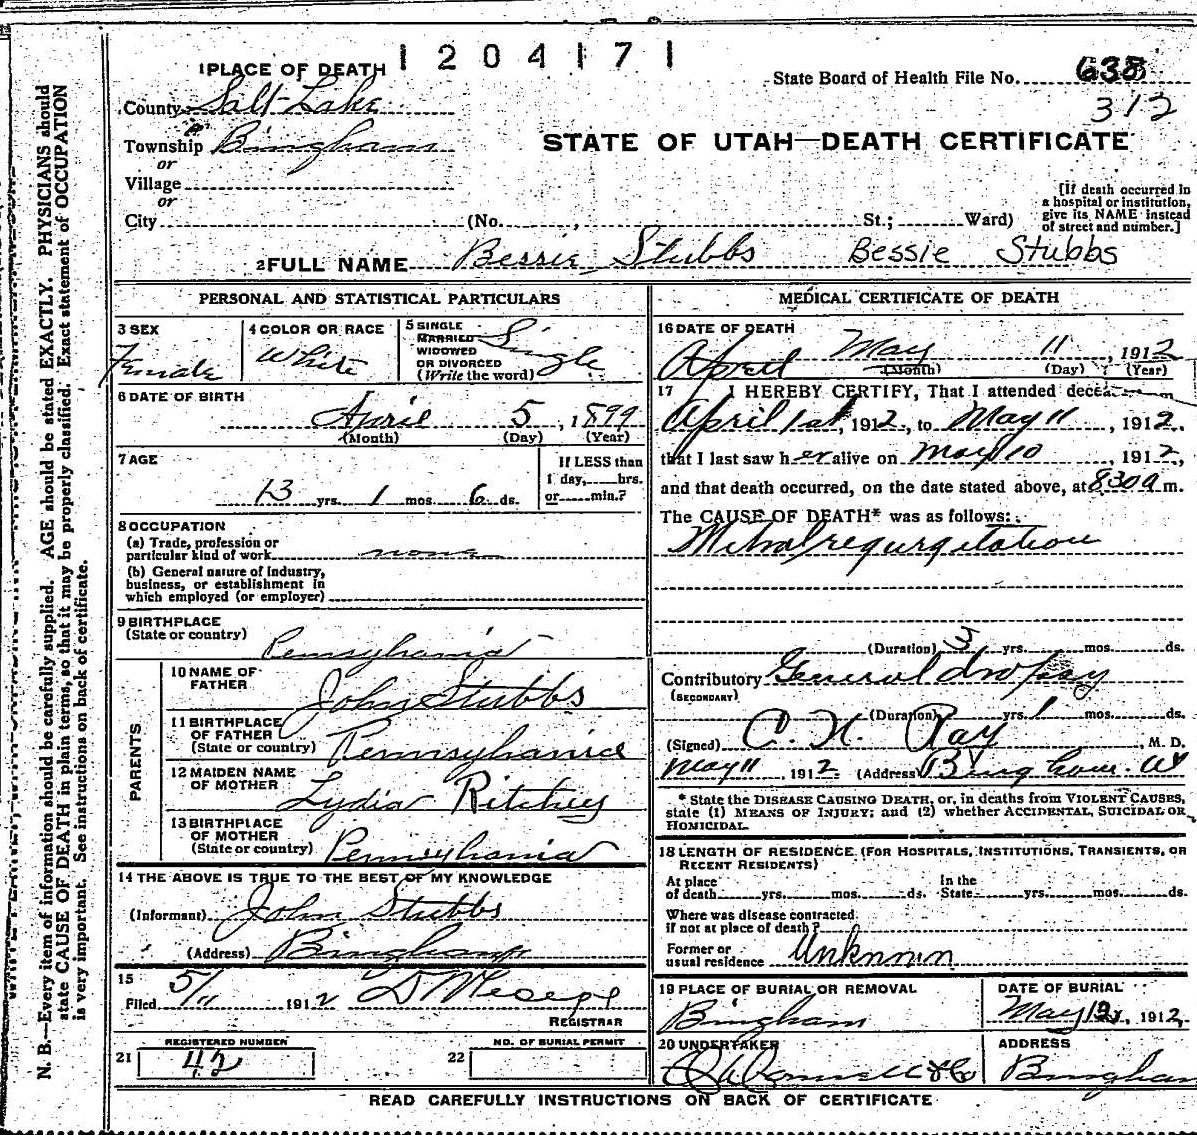 1204171
1 PLACE OF DEATH
State Board of Health File No. 638
312
County Salt Lake
Township Bingham
or
Village
or
City (No. , St.; Ward)
STATE OF UTAH—DEATH CERTIFICATE
[If death occurred in
a hospital or institution,
give its NAME instead
of street and number.]
2 FULL NAME Bessie Stubbs Bessie Stubbs
PERSONAL AND STATISTICAL PARTICULARS
3 SEX
Female
4 COLOR OR RACE
White
5 SINGLE
MARRIED
WIDOWED
OR DIVORCED
(Write the word)
Single
6 DATE OF BIRTH
April 5, 1899
(Month) (Day) (Year)
7 AGE
13 yrs. 1 mos. 6 ds.
If LESS than
1 day, hrs.
or min.?
8 OCCUPATION
(a) Trade, profession or
particular kind of work none
(b) General nature of industry,
business, or establishment in
which employed (or employer)
9 BIRTHPLACE
(State or country) Pennsylvania
PARENTS
10 NAME OF
FATHER John Stubbs
11 BIRTHPLACE
OF FATHER
(State or country) Pennsylvania
12 MAIDEN NAME
OF MOTHER Lydia Ritchey
13 BIRTHPLACE
OF MOTHER
(State or country) Pennsylvania
14 THE ABOVE IS TRUE TO THE BEST OF MY KNOWLEDGE
(Informant) John Stubbs
(Address) Bingham
15
Filed 5/11 1912
REGISTRAR
REGISTERED NUMBER
21 42
NO. OF BURIAL PERMIT
22
MEDICAL CERTIFICATE OF DEATH
16 DATE OF DEATH
April May 11, 1912
(Month) (Day) (Year)
17 I HEREBY CERTIFY, That I attended
April 1st, 1912, to May 11, 1912,
that I last saw her alive on May 10 1912,
and that death occurred, on the date stated above, at 830 a m.
The CAUSE OF DEATH* was as follows:
Mitral regurgitation
(Duration) 3 yrs. mos. ds.
Contributory General dropsy
(SECONDARY)
(Duration) yrs. 1 mos. ds.
(Signed) C. N. Ray, M. D.
May 11, 1912. (Address) Bingham Ut
* State the DISEASE CAUSING DEATH, or, in deaths from VIOLENT CAUSES,
state (1) MEANS OF INJURY; and (2) whether ACCIDENTAL, SUICIDAL OR
HOMICIDAL.
18 LENGTH OF RESIDENCE (FOR HOSPITALS, INSTITUTIONS, TRANSIENTS, OR
RECENT RESIDENTS)
At place
of death yrs. mos. ds.
In the
State yrs. mos. ds.
Where was disease contracted
if not at place of death?
Former or
usual residence Unknown
19 PLACE OF BURIAL OR REMOVAL
Bingham
DATE OF BURIAL
May 12, 1912
20 UNDERTAKER
ADDRESS
Bingham
READ CAREFULLY INSTRUCTIONS ON BACK OF CERTIFICATE
N. B.—Every item of information should be carefully supplied. AGE should be stated EXACTLY. PHYSICIANS should
state CAUSE OF DEATH in plain terms, so that it may be properly classified. Exact statement of OCCUPATION
is very important. See instructions on back of certificate.